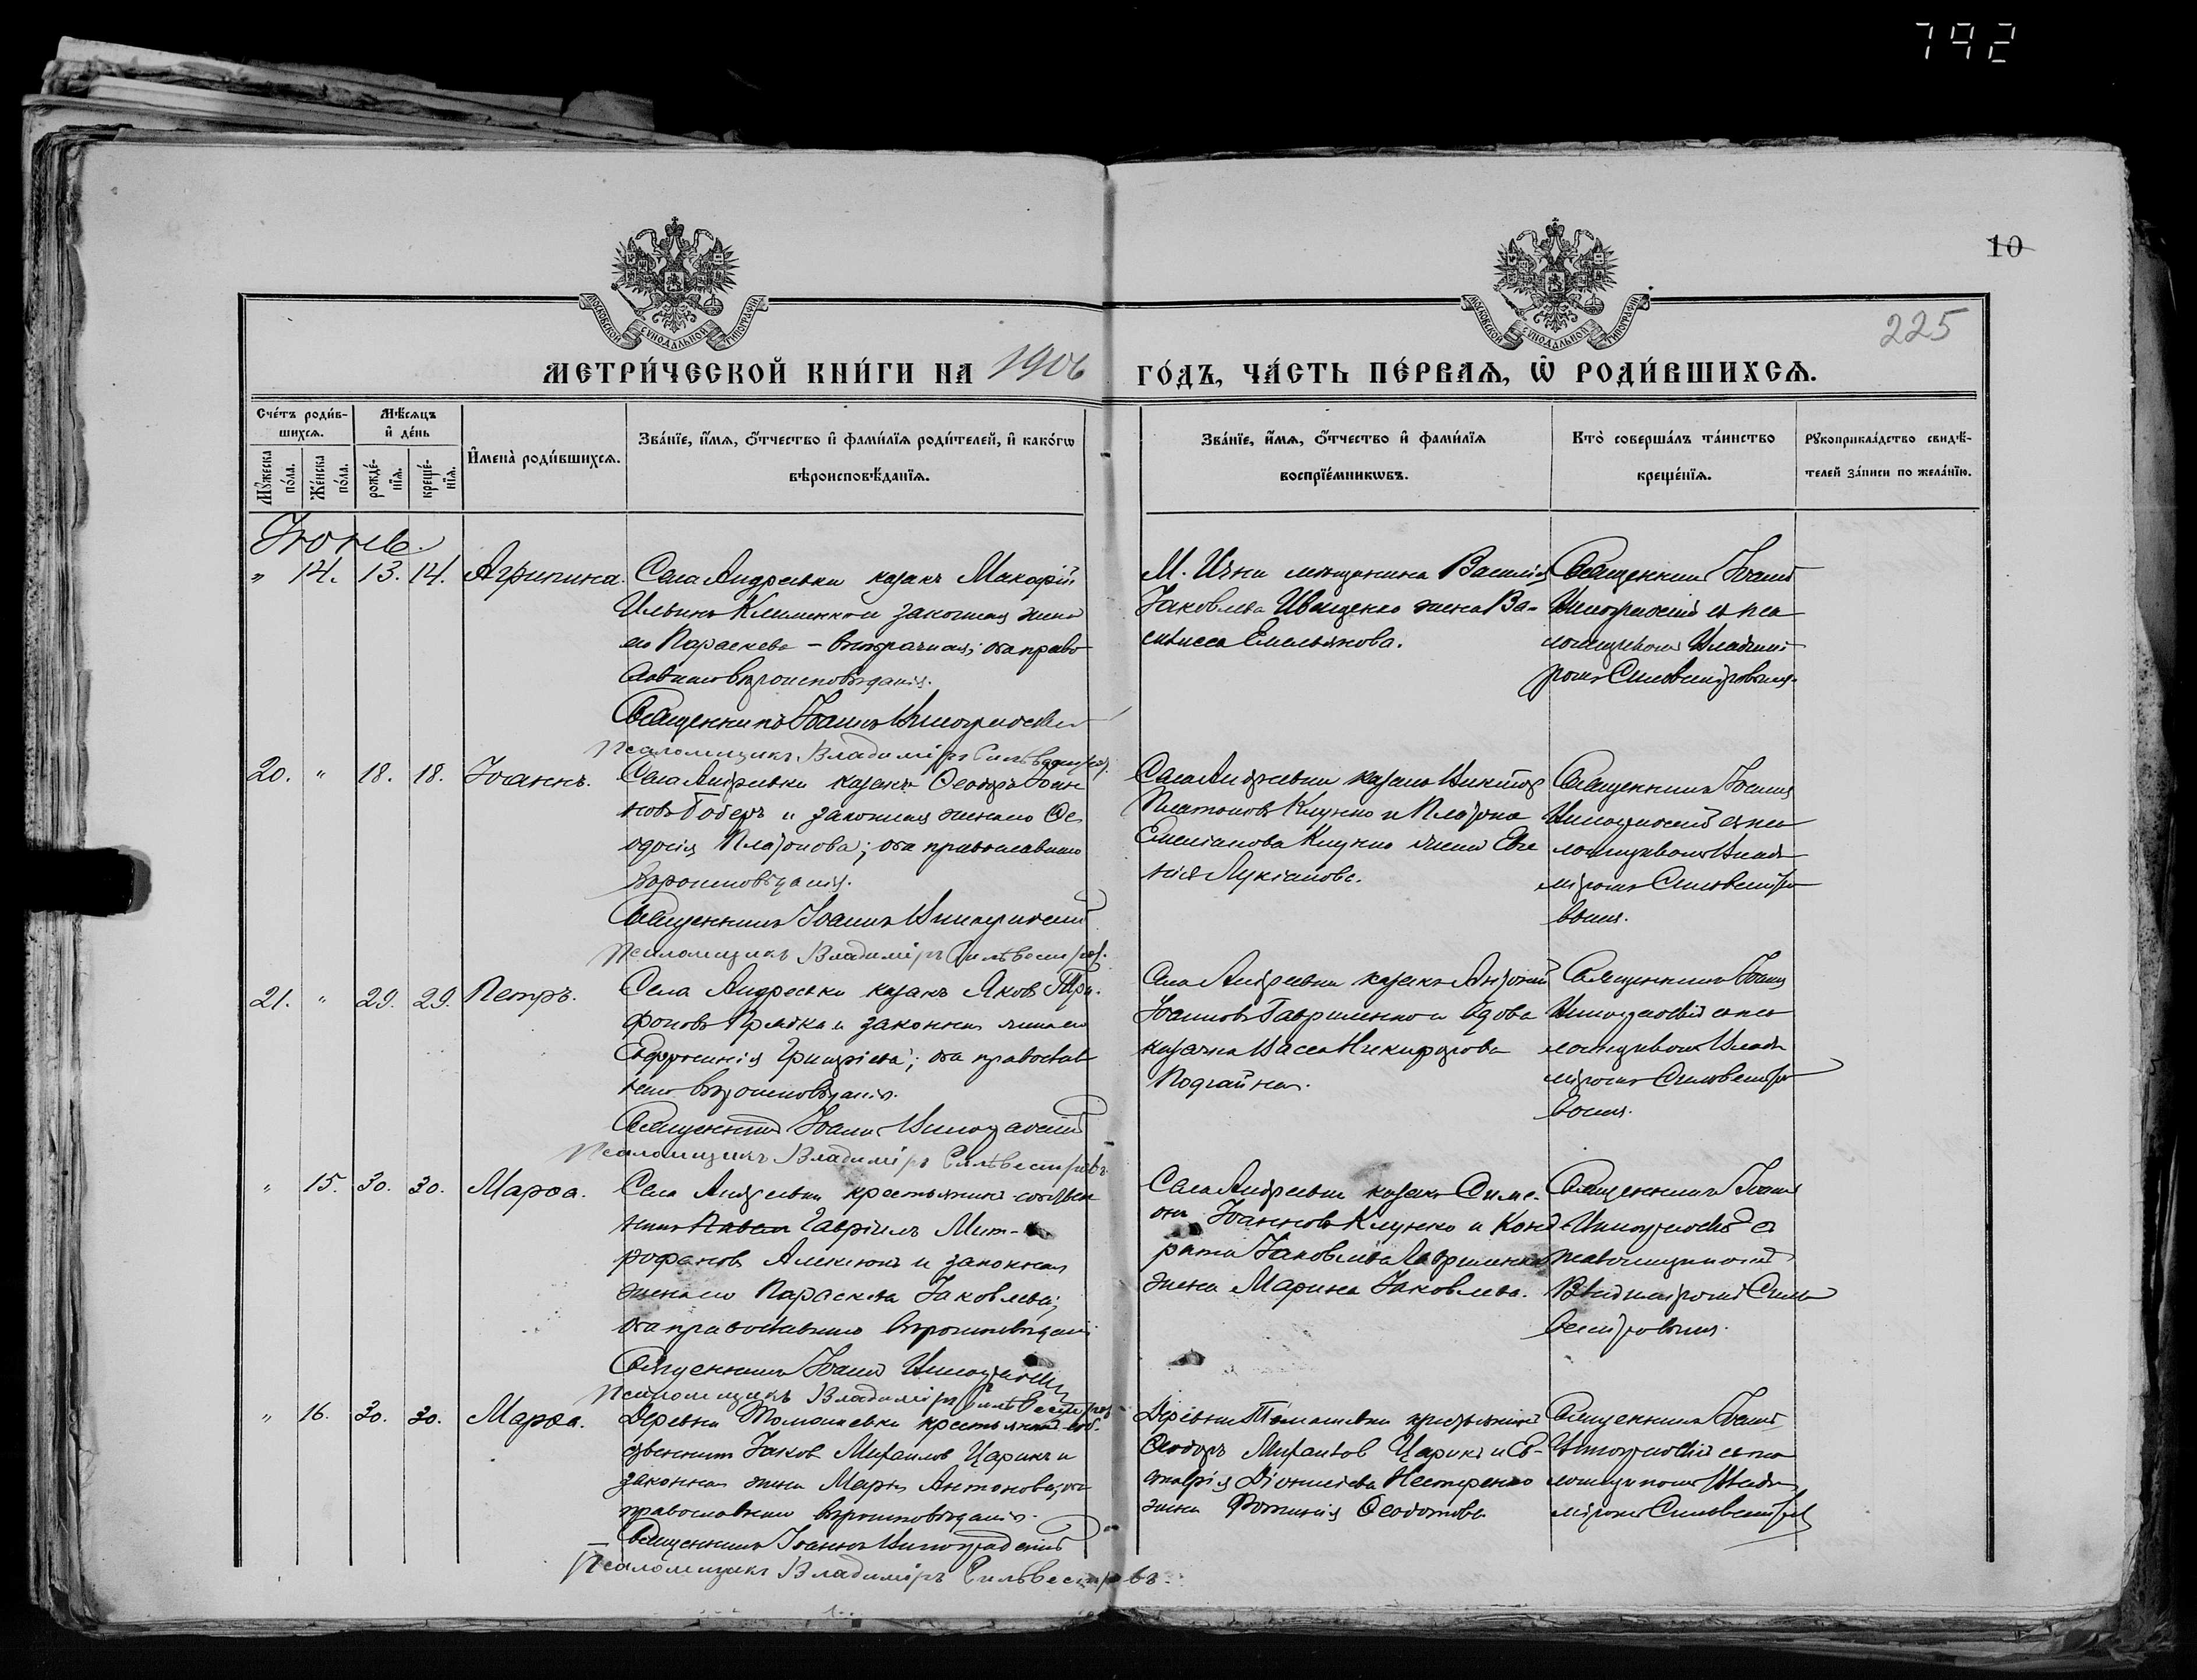 792
10
225
МОСКОВСКОЙ СѴНОДАЛЬНОЙ ТИПОГРАФІИ
МОСКОВСКОЙ СѴНОДАЛЬНОЙ ТИПОГРАФІИ
МЕТРИ́ЧЕСКОЙ КНИ́ГИ НА 1906 ГО́ДЪ, ЧА́СТЬ ПЕ́РВАѦ, Ѡ РОДИ́ВШИХСѦ.
Сче́тъ роди́в-
шихсѧ.
Мѣ́сѧцъ
и де́нь
Мꙋ́жеска по́ла.
Же́нска по́ла.
рожде́-
нїѧ.
креще́-
нїѧ.
Имена̀ роди́вшихсѧ.
Зва́нїе, и́мѧ, ѻ́тчество и фами́лїѧ роди́телей, и како́гѡ
вѣроисповѣ́данїѧ.
Зва́нїе, и́мѧ, ѻ́тчество и фами́лїѧ
воспрїе́мникѡвъ.
Кто̀ соверша́лъ та́инство
креще́нїѧ.
Рꙋкоприкла́дство свидѣ́-
телей за́писи по жела́нїю.
Іюнь
" 14. 13. 14. Агрипина.
Села Андреевки казакъ Макарій
Ильинъ Клименко и законная жена
его Параскева
православнаго вѣроисповѣданія.
Священникъ Іоаннъ
Псаломщикъ Владиміръ Сильвестровъ
М. Ични мѣщанина Василія
Іаковлева Иващенко жена Ва-
силисса Емельянова.
Священникъ Іоаннъ
съ пса
ломщикомъ Влади
ромъ Сильвестровымъ.
20. " 18. 18. Іоаннъ.
Села Андреевки казакъ Ѳеодоръ Іоан
новъ Боберъ и законная жена его Ѳе
одосія Платонова; оба православнаго
вѣроисповѣданія.
Священникъ Іоаннъ
Псаломщикъ Владиміръ Сильвестров.
Села Андреевки казакъ Никита
Платоновъ Клунко и Платона
Клунко жена Евге
нія Лукіанова.
Священникъ Іоаннъ
съ пса
ломщикомъ Влади
міромъ Сильвестро
вымъ.
21. " 29. 29. Петръ.
Села Андреевки казакъ Яковъ Три-
фоновъ и законная жена его
Евфросинія Григоріева; оба православ
наго вѣроисповѣданія.
Священникъ Іоаннъ
Псаломщикъ Владиміръ Сильвестровъ
Села Андреевки казакъ
Іоанновъ Гавриленко и вдова
казачка Васса Никифорова
Подгайная.
Священникъ Іоаннъ
съ пса
ломщикомъ Влади
міромъ Сильвестро
вымъ.
" 15. 30. 30. Марѳа.
Села Андреевки крестьянинъ собствен
никъ Гавріилъ Мит-
рофановъ Алексюкъ и законная
жена его Параскева Іаковлева;
оба православнаго вѣроисповѣданія
Священникъ Іоаннъ
Псаломщикъ Владиміръ Сильвестров
Села Андреевки казакъ Симе-
онъ Іоанновъ Клунко и Конд
рата Іаковлева Гавриленка
жена Марина Іаковлева.
Священникъ Іоаннъ
съ
псаломщикомъ
Владиміромъ Силь
вестровымъ.
" 16. 30. 30. Марѳа.
Деревни Томашевки крестьянинъ соб-
ственникъ Іаковъ Михаиловъ Царикъ и
законная жена Марія Антонова; оба
православнаго вѣроисповѣданія.
Священникъ Іоаннъ
Псаломщикъ Владиміръ Сильвестровъ.
Деревни Томашевки крестьянинъ
Ѳеодоръ Михаиловъ Царикъ и Ев-
стафія Діонисіева Нестеренко
жена Фотинія Ѳеодотова
Священникъ Іоаннъ
съ пса
ломщикомъ Влади
міромъ Сильвестров